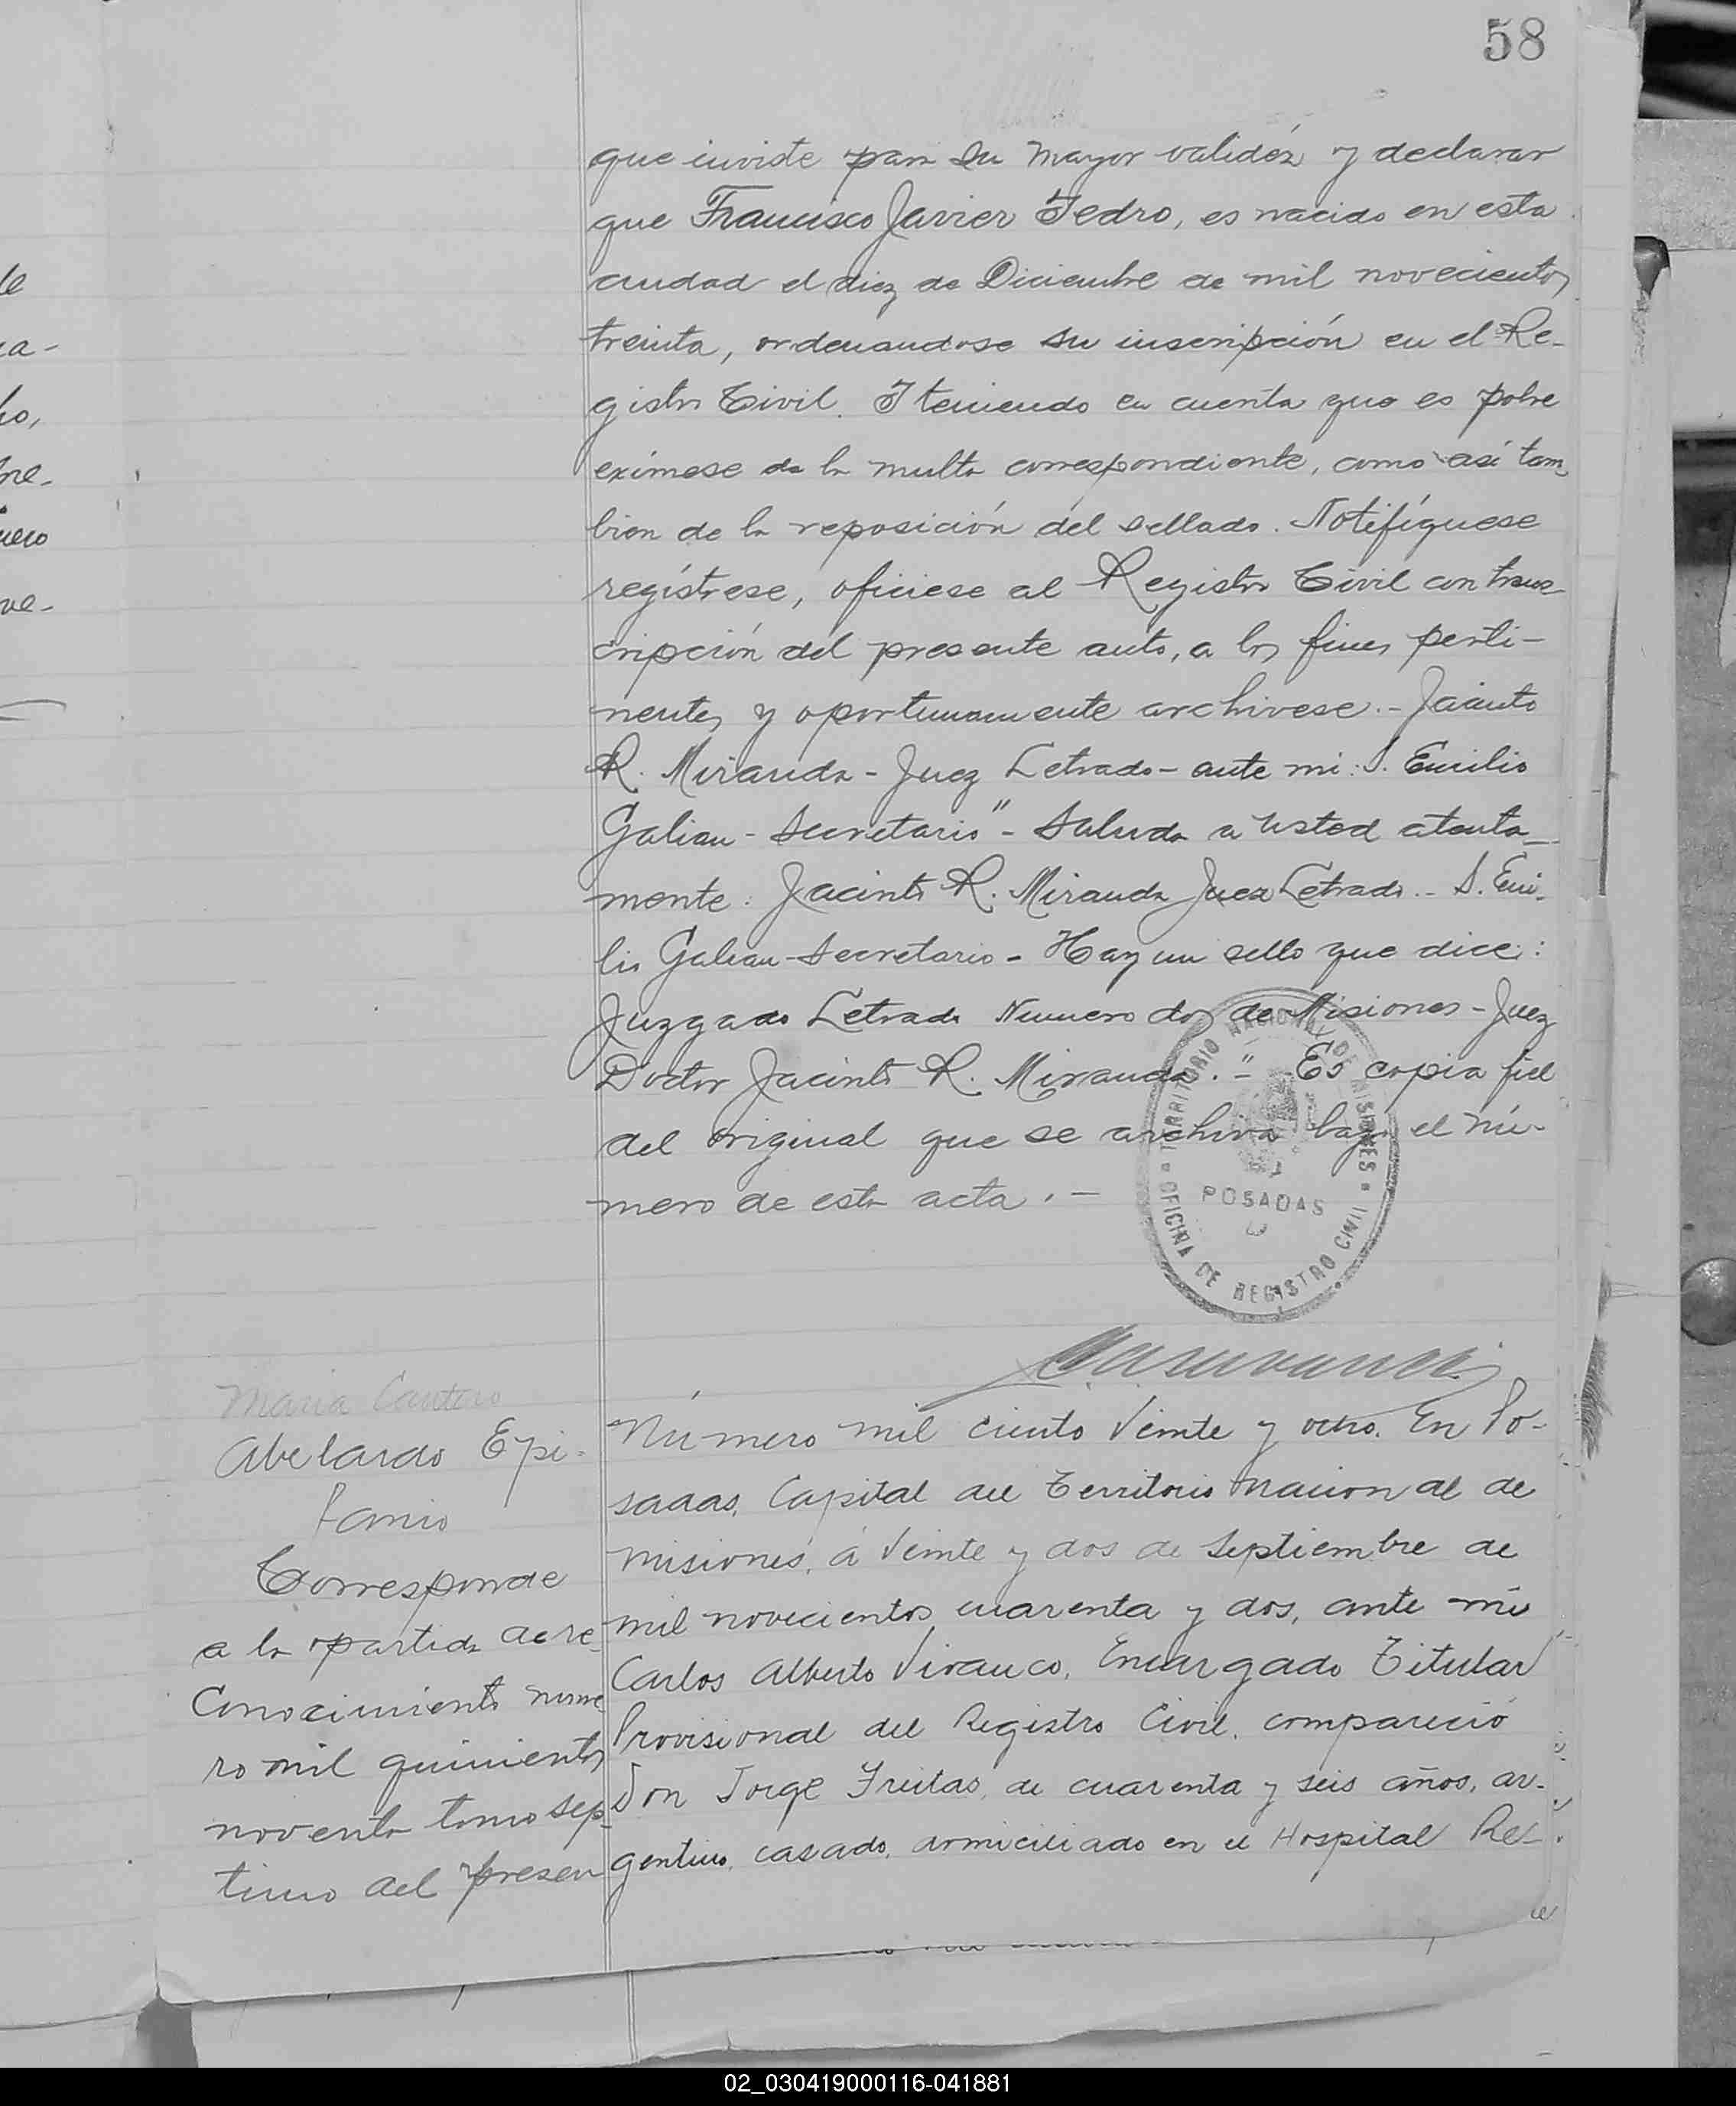 58
que inviste para su mayor validéz y declarar
que Francisco Javier Fedro, es nacido en esta
ciudad el diez de Diciembre de mil novecientos
treinta, ordenandose su inscripción en el Re-
gistro Civil. I teniendo en cuenta que es pobre
exímese de la multa correspondiente, como así tam
bien de la reposición del sellado. Notifíquese
regístrese, ofíciese al Registro Civil con trans
cripción del presente auto, a los fines perti-
nentes y oportunamente archivese.- Jacinto
R. Miranda - Juez Letrado - ante mi: S. Emilio
Galian - Secretario" - Saluda a usted atenta_
mente: Jacinto R. Miranda Juez Letrado.- S. Emi-
lio Galian - Secretario - Hay un sello que dice:
Juzgado Letrado Numero dos de Misiones - Juez
Doctor Jacinto R. Miranda." - Es copia fiel
del original que se archiva bajo el nú-
mero de esta acta.-
TERRITORIO NACIONAL DE MISIONES
POSADAS
OFICINA DE REGISTRO CIVIL
Maria Cantero
Abelardo Epi-
fanio
Corresponde
a la partida de re-
conocimiento nume
ro mil quinientos
noventa tomo sep-
timo del presen
Número mil ciento veinte y ocho. En Po-
sadas, Capital del Territorio Nacional de
Misiones, á veinte y dos de Septiembre de
mil novecientos cuarenta y dos, ante mi
Carlos Alberto Virauco, Encargado Titular
Provisional del Registro Civil, compareció
Don Jorge Freitas, de cuarenta y seis años, ar-
gentino, casado, domiciliado en el Hospital Re-
02_030419000116-041881